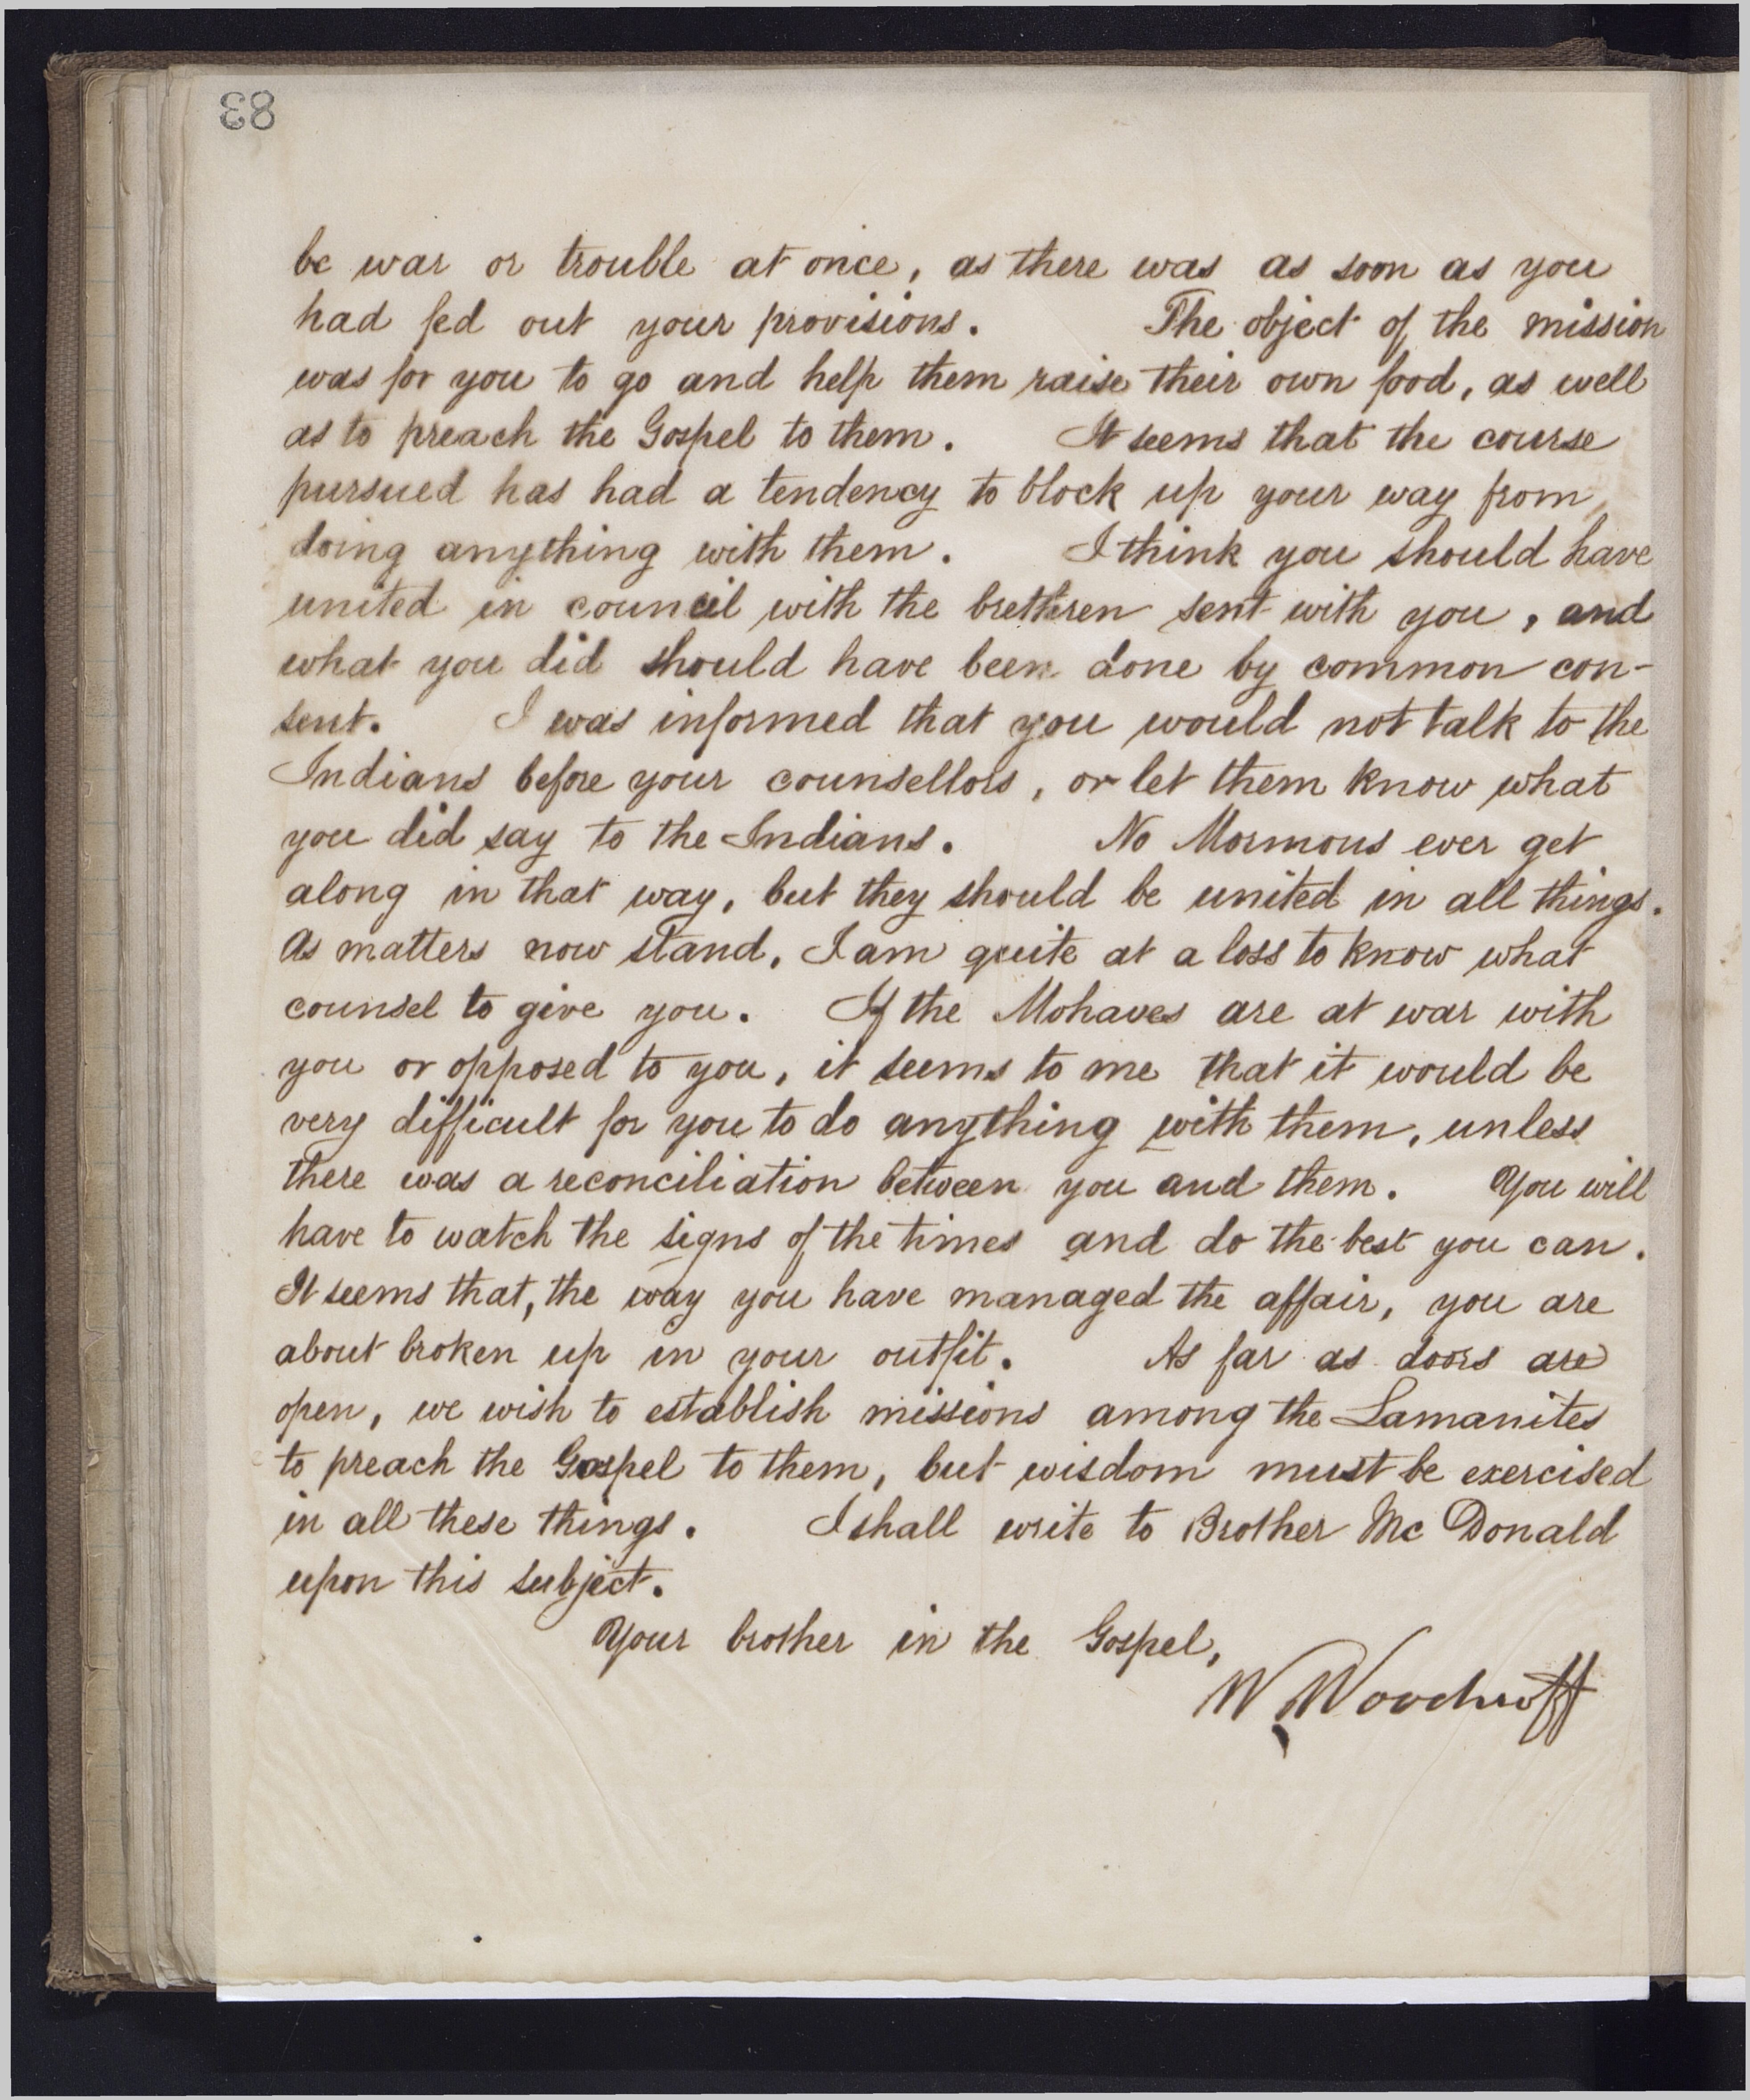 83
be war or trouble at once, as there was as soon as you
had fed out your provisions. The object of the mission
was for you to go and help them raise their own food, as well
as to preach the Gospel to them. It seems that the course
pursued has had a tendency to block up your way from
doing anything with them. I think you should have
united in council with the brethren sent with you, and
what you did should have been done by common con-
sent. I was informed that you would not talk to the
Indians before your counsellors, or let them know what
you did say to the Indians. No Mormons ever get
along in that way, but they should be united in all things.
As matters now stand, I am quite at a loss to know what
counsel to give you. If the Mohaves are at war with
you or opposed to you, it seems to me that it would be
very difficult for you to do anything with them, unless
there was a reconciliation between you and them. You will
have to watch the signs of the times and do the best you can.
It seems that, the way you have managed the affair, you are
about broken up in your outfit. As far as doors are
open, we wish to establish missions among the Lamanites
to preach the Gospel to them, but wisdom must be exercised
in all these things. I shall write to Brother Mc Donald
upon this subject.
Your brother in the Gospel,
W. Woodruff